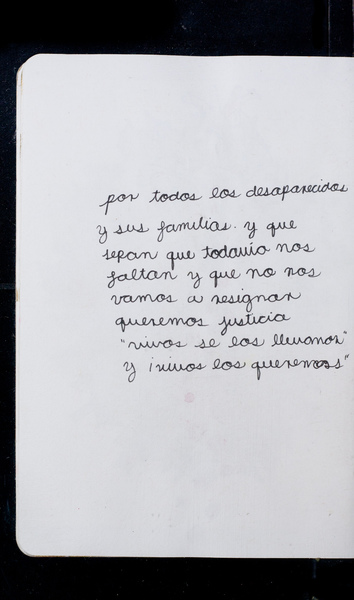 por todos los desaparecidos
y sus familias. y que
sepan que todavía nos
faltan y que no nos
vamos a resignar
queremos justicia
"vivos se los llevaron"
y ¡vivos los queremos"